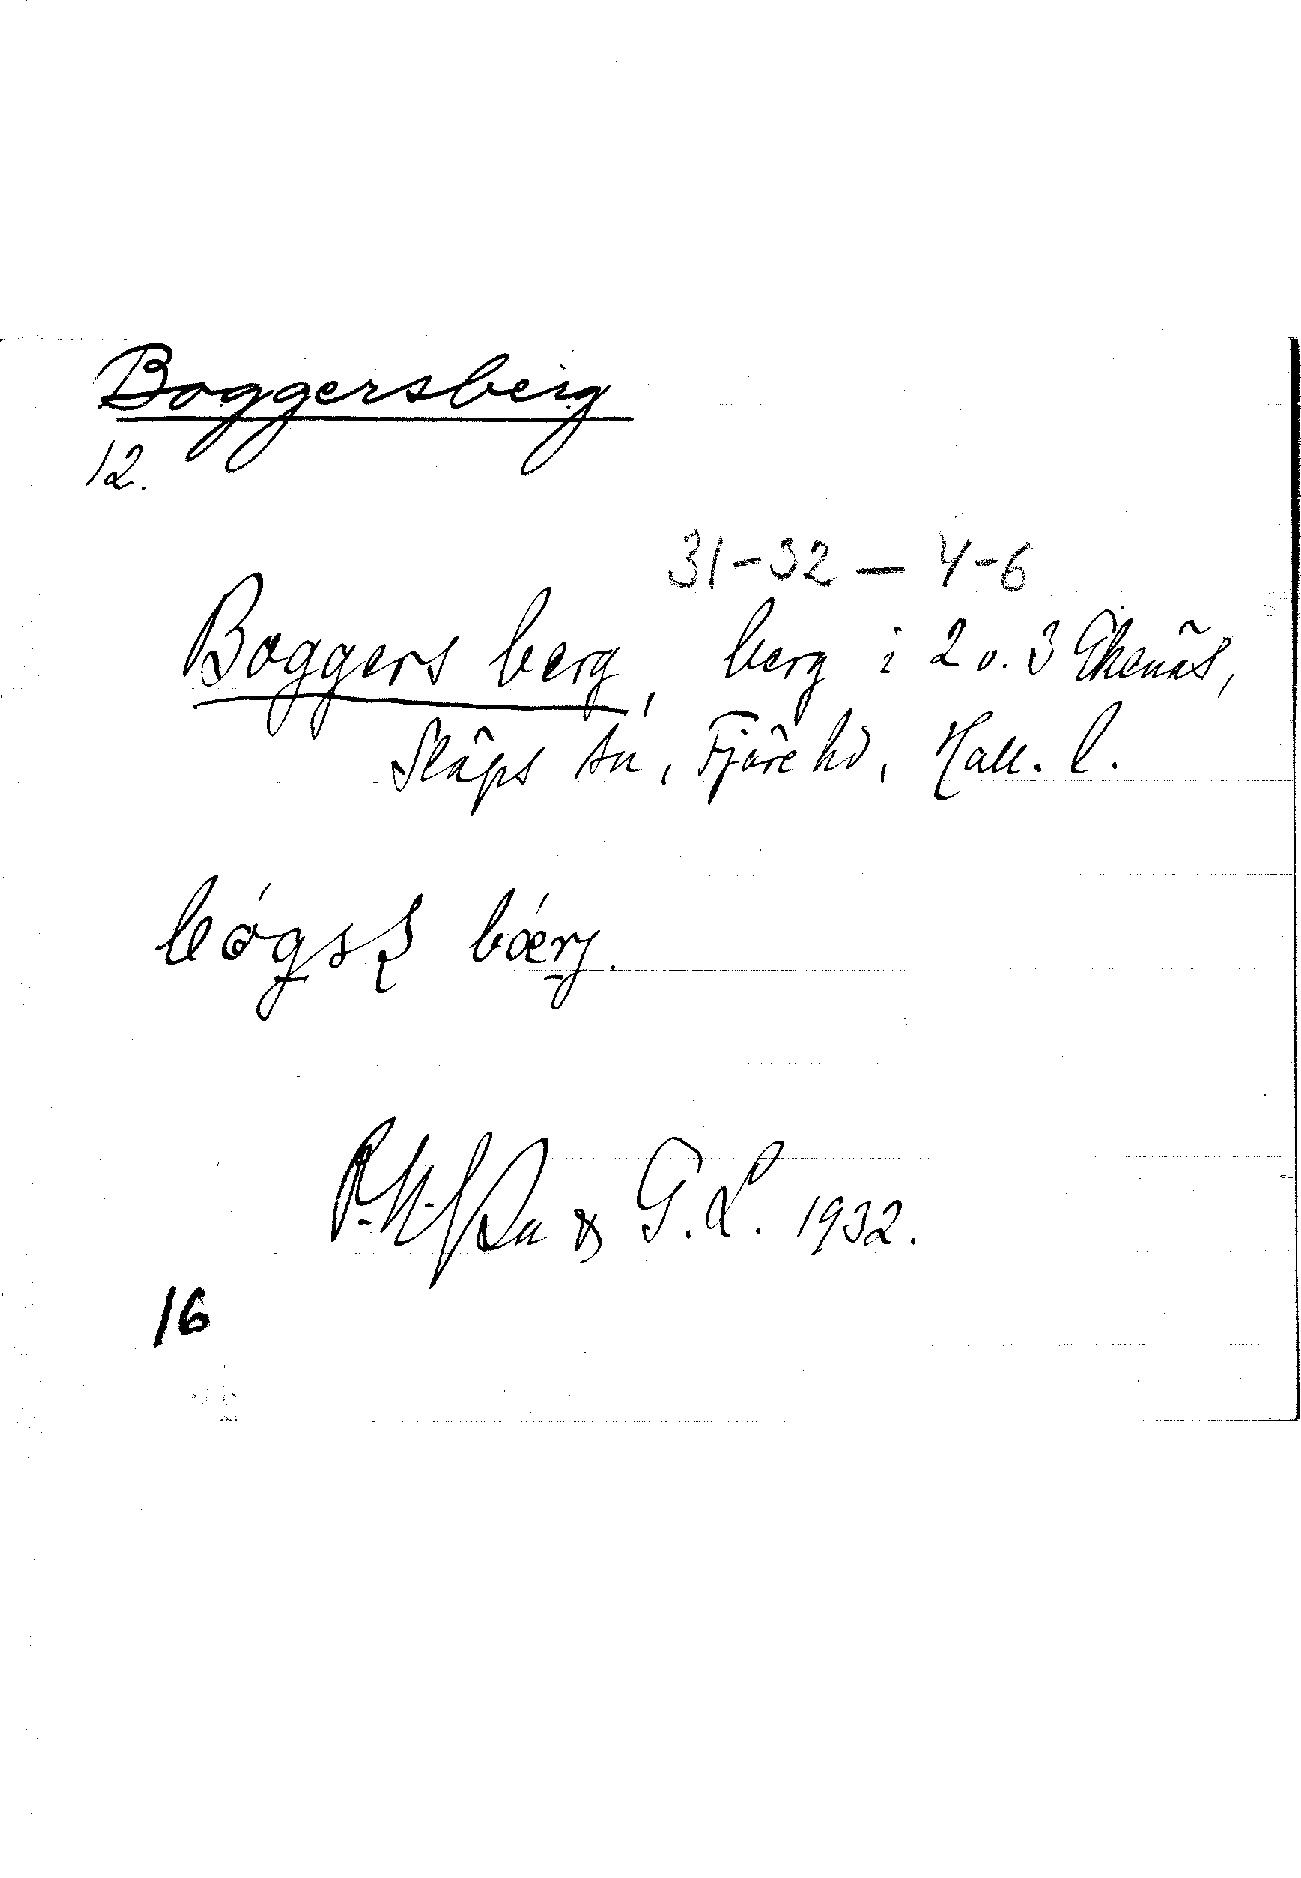 Boggersberg
12.
31-32 — 4-6
Boggers berg, berg i 2 o. 3 Ekenäs,
Släps sn, Fjäre hd, Hall. l.
bǽrj.
G. L. 1932.
16